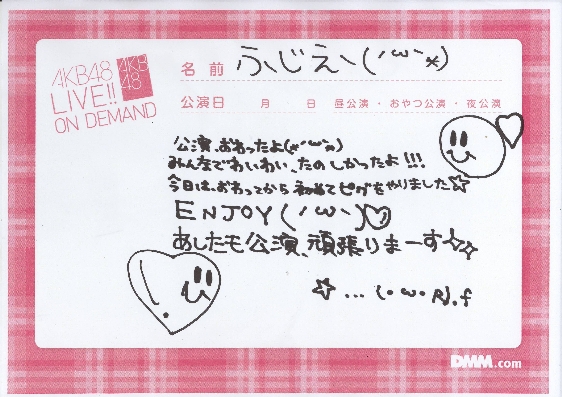 AKB48
LIVE!!
ON DEMAND
AKB
48
名前 ふじえ(´ω`*)
公演日 月 日 昼公演・おやつ公演・夜公演
公演、おわったよ(*´ω`*)
みんなでわいわい、たのしかったよ!!!
今日は、おわってから初めてピグをやりました☆
ENJOY(´ω`)♡
あしたも公演、頑張りまーす☆☆
☆...(・ω・R).f
DMM.com